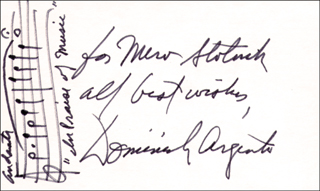 for Merv Slotnick
all best wishes,
Dominick Argento
Andante
"In Praise of Music"